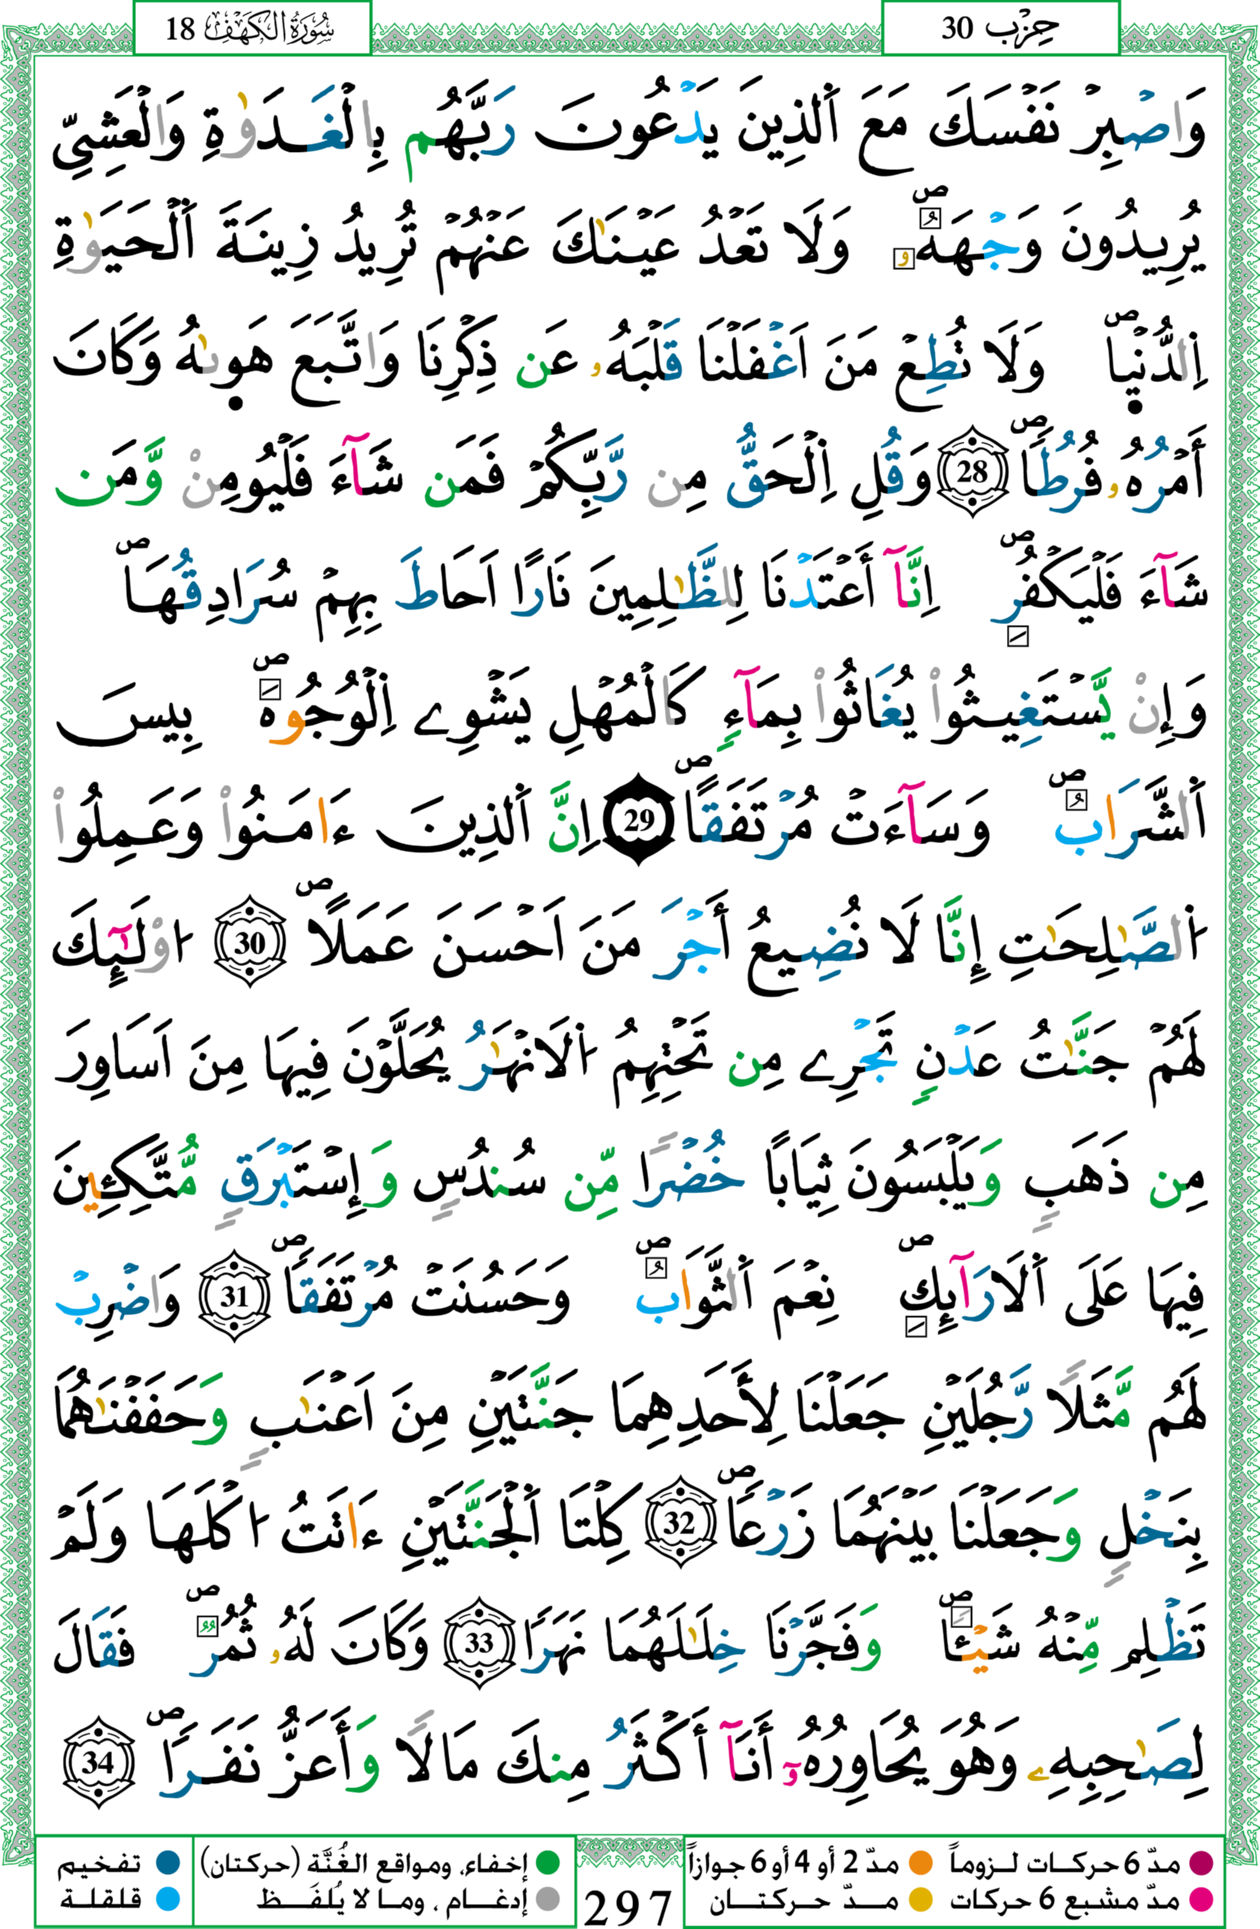 حِزْب 30
سُورَةُ الكَهْف 18
وَاصْبِرْ نَفْسَكَ مَعَ اَ۬لذِينَ يَدْعُونَ رَبَّهُم بِالْغَدَوٰةِ وَالْعَشِيِّ
يُرِيدُونَ وَجْهَهُۥۖ وَلَا تَعْدُ عَيْنَٰكَ عَنْهُمْ تُرِيدُ زِينَةَ اَ۬لْحَيَوٰةِ
اِ۬لدُّنْي۪اۖ وَلَا تُطِعْ مَنَ اَغْفَلْنَا قَلْبَهُۥ عَن ذِكْرِنَا وَاتَّبَعَ هَو۪ىٰهُ وَكَانَ
أَمْرُهُۥ فُرُطاٗۖ 28 وَقُلِ اِ۬لْحَقُّ مِن رَّبِّكُمْ فَمَن شَآءَ فَلْيُومِنْ وَّمَن
شَآءَ فَلْيَكْفُرِۖ اِنَّآ أَعْتَدْنَا لِلظَّٰلِمِينَ نَارًا اَحَاطَ بِهِمْ سُرَادِقُهَاۖ
وَإِنْ يَّسْتَغِيثُواْ يُغَاثُواْ بِمَآءٖ كَالْمُهْلِ يَشْوِے اِ۬لْوُجُوهَۖ بِيسَ
اَ۬لشَّرَابُۖ وَسَآءَتْ مُرْتَفَقاًۖ 29 اِنَّ اَ۬لذِينَ ءَامَنُواْ وَعَمِلُواْ
اُ۬لصَّٰلِحَٰتِ إِنَّا لَا نُضِيعُ أَجْرَ مَنَ اَحْسَنَ عَمَلاًۖ 30 ا۟وْلَٰٓئِكَ
لَهُمْ جَنَّٰتُ عَدْنٖ تَجْرِے مِن تَحْتِهِمُ اُ۬لَانْهَٰرُ يُحَلَّوْنَ فِيهَا مِنَ اَسَاوِرَ
مِن ذَهَبٖ وَيَلْبَسُونَ ثِيَابًا خُضْرٗا مِّن سُندُسٖ وَإِسْتَبْرَقٖ مُّتَّكِـِٕينَ
فِيهَا عَلَى اَ۬لَارَآئِكِۖ نِعْمَ اَ۬لثَّوَابُۖ وَحَسُنَتْ مُرْتَفَقاٗۖ 31 وَاضْرِبْ
لَهُم مَّثَلٗا رَّجُلَيْنِ جَعَلْنَا لِأَحَدِهِمَا جَنَّتَيْنِ مِنَ اَعْنَٰبٖ وَحَفَفْنَٰهُمَا
بِنَخْلٖ وَجَعَلْنَا بَيْنَهُمَا زَرْعاٗۖ 32 كِلْتَا اَ۬لْجَنَّتَيْنِ ءَاتَتُ ا۟كْلَهَا وَلَمْ
تَظْلِم مِّنْهُ شَيْـٔاٗۖ وَفَجَّرْنَا خِلَٰلَهُمَا نَهَرٗا 33 وَكَانَ لَهُۥ ثُمُرٞۖ فَقَالَ
لِصَٰحِبِهِۦ وَهْوَ يُحَاوِرُهُۥٓ أَنَآ أَكْثَرُ مِنكَ مَالٗا وَأَعَزُّ نَفَراٗۖ 34
مدّ 6 حركات لـزوماً مدّ 2 أو 4 أو 6 جوازاً
مدّ مشبع 6 حركات مــدّ حــركتــان
297
إخفاء، ومواقع الغُنَّة (حركتان) تفخيم
إدغــام ، ومـا لا يُلفَــظ قلقلة